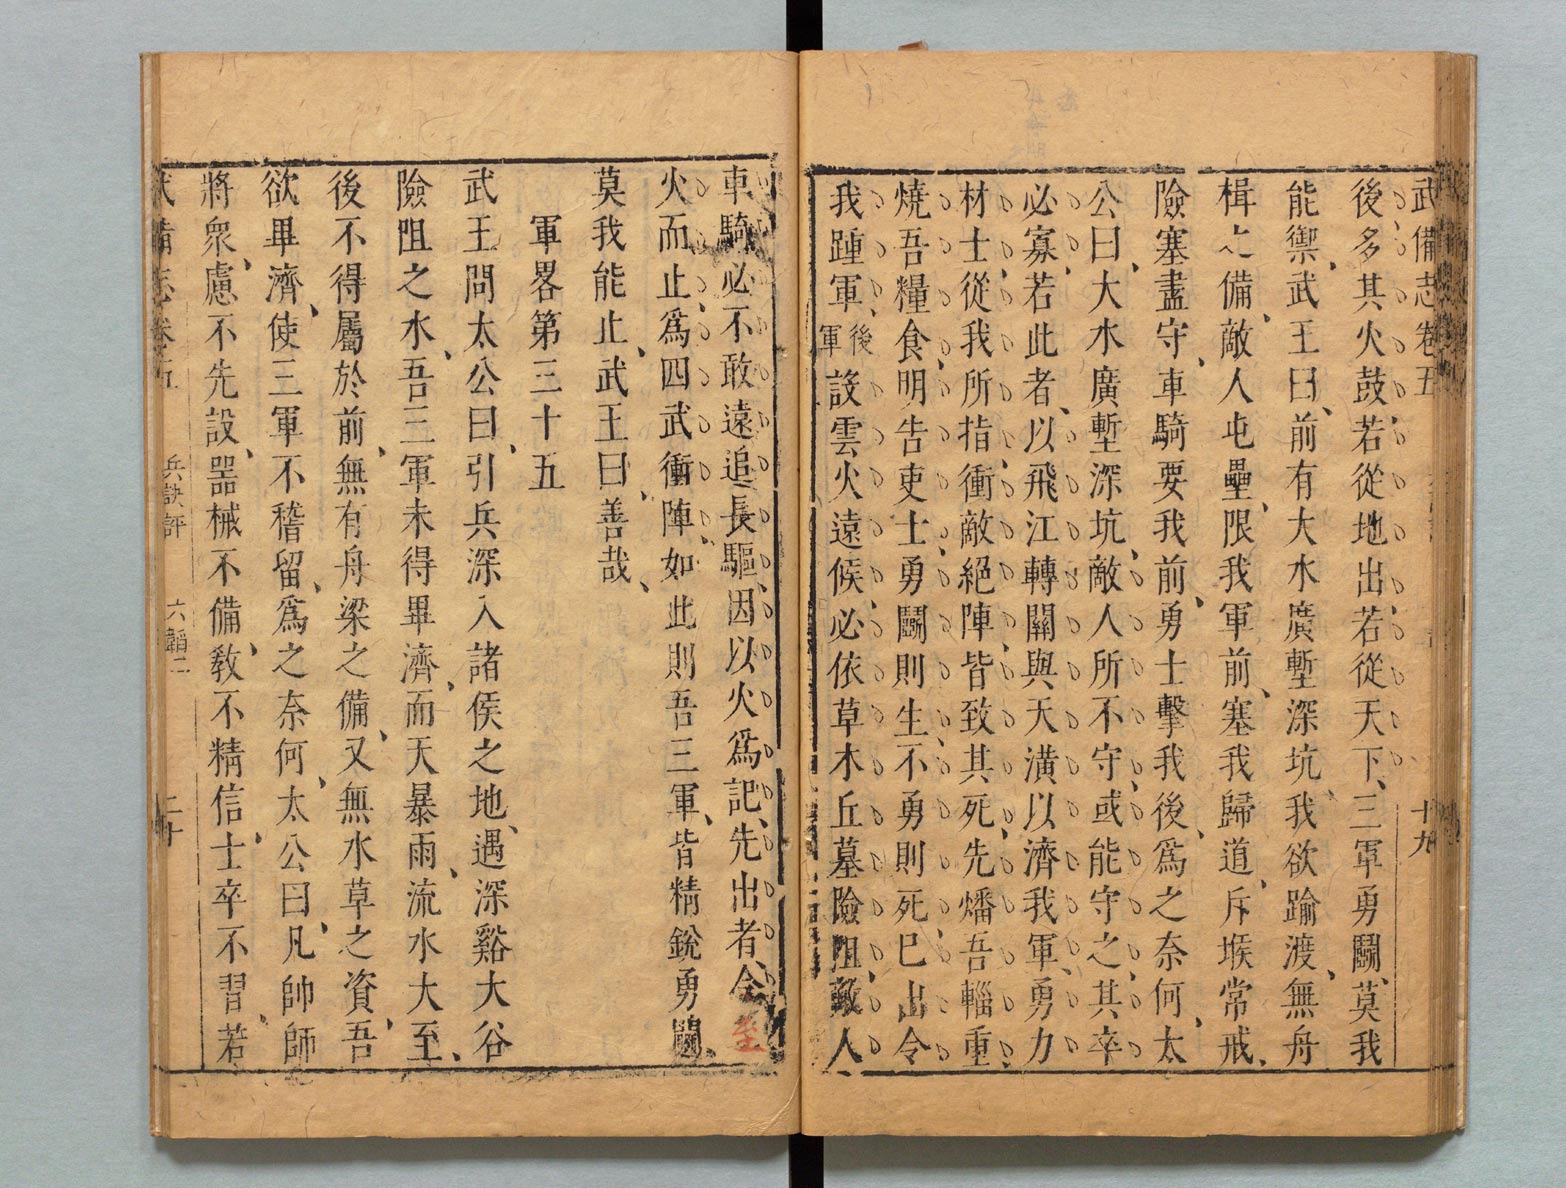 武備志卷五
十九
後、多其火鼓、若從地出若從天下、三軍勇鬭、莫我
能禦、武王曰、前有大水廣塹深坑、我欲踰渡、無舟
楫之備、敵人屯壘、限我軍前、塞我歸道、斥堠常戒、
險塞盡守、車騎要我前、勇士擊我後、爲之奈何、太
公曰、大水廣塹深坑、敵人所不守、或能守之、其卒
必寡、若此者、以飛江轉關與天潢以濟我軍、勇力
材士、從我所指、衝敵絕陣、皆致其死、先燔吾輜重、
燒吾糧食、明告吏士、勇鬭則生、不勇則死、已出令
我踵軍、後軍設雲火遠候、必依草木丘墓險阻、敵人
車騎必不敢遠追長驅、因以火爲記、先出者、令至
火而止、爲四武衝陣、如此則吾三軍、皆精銳勇鬭、
莫我能止、武王曰、善哉、
軍畧第三十五
武王問太公曰、引兵深入諸侯之地、遇深谿大谷
險阻之水、吾三軍未得畢濟、而天暴雨、流水大至、
後不得屬於前、無有舟梁之備、又無水草之資、吾
欲畢濟、使三軍不稽留、爲之奈何、太公曰、凡帥師
將衆、慮不先設、器械不備、敎不精信、士卒不習、若
武備志卷五
兵訣評
六韜二
二十